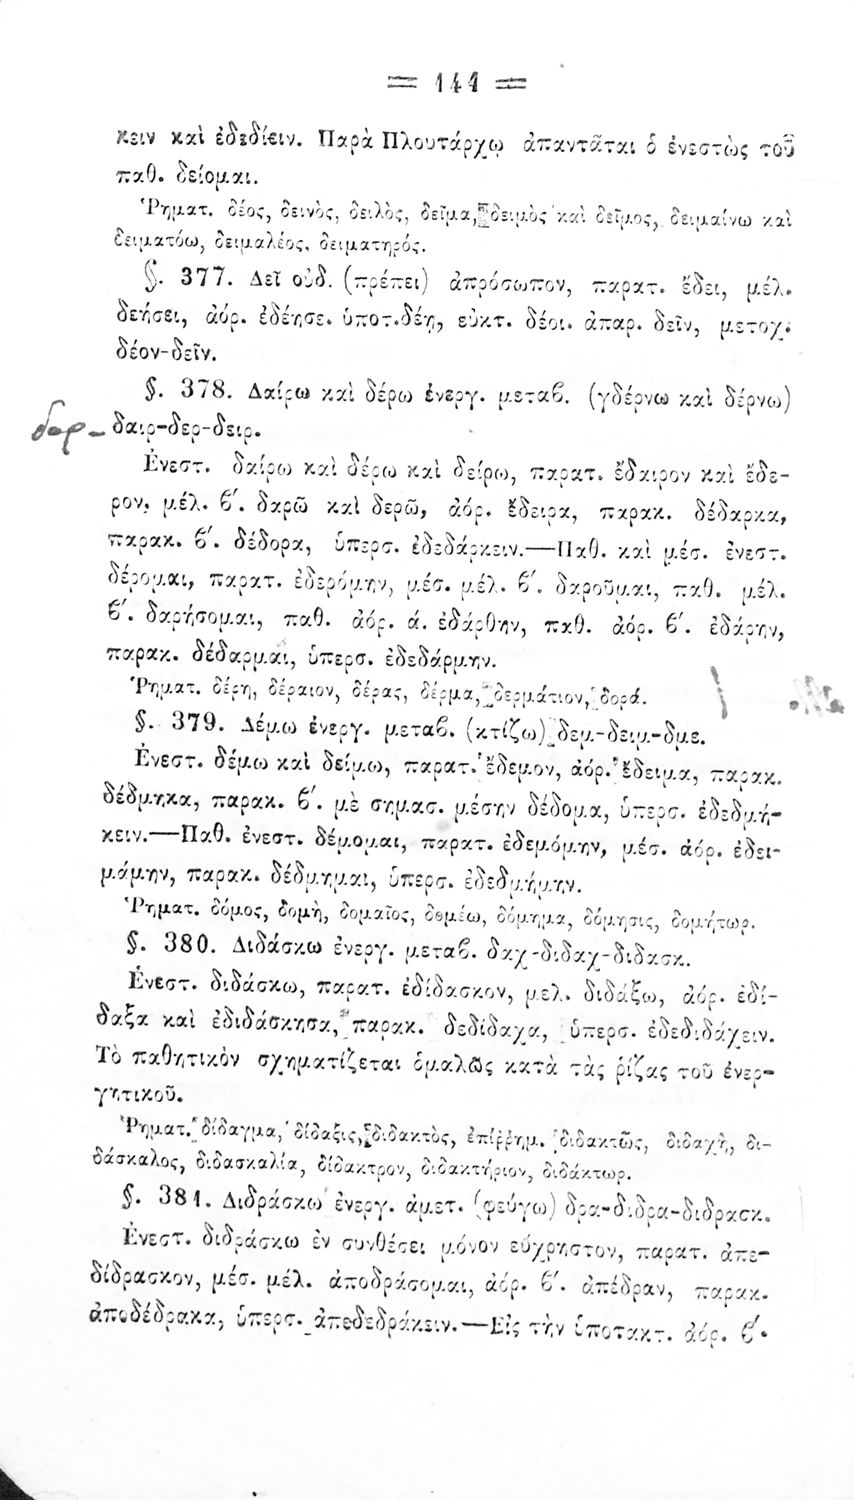 = 141 =
κειν καὶ ἐδεδίειν. Παρὰ Πλουτάρχῳ ἀπαντᾶται ὁ ἐνεστὼς τοῦ
παθ. δείομαι.
Ῥηματ. δέος, δεινὸς, δειλὸς, δεῖμα, δειμὸς καὶ δεῖμος, δειμαίνω καὶ
δειματόω, δειμαλέος, δειματηρός.
§. 377. Δεῖ οὐδ. (πρέπει) ἀπρόσωπον, παρατ. ἔδει, μέλ.
δεήσει, ἀόρ. ἐδέησε. ὑποτ. δέῃ, εὐκτ. δέοι. ἀπαρ. δεῖν, μετοχ.
δέον-δεῖν.
§. 378. Δαίρω καὶ δέρω ἐνεργ. μεταβ. (γδέρνω καὶ δέρνω)
δαρ- δαιρ-δερ-δειρ.
Ἐνεστ. δαίρω καὶ δέρω καὶ δείρω, παρατ. ἔδαιρον καὶ ἔδε-
ρον, μέλ. β'. δαρῶ καὶ δερῶ, ἀόρ. ἔδειρα, παρακ. δέδαρκα,
παρακ. β'. δέδορα, ὑπερσ. ἐδεδάρκειν.—Παθ. καὶ μέσ. ἐνεστ.
δέρομαι, παρατ. ἐδερόμην, μέσ. μέλ. β'. δαροῦμαι, παθ. μέλ.
β'. δαρήσομαι, παθ. ἀόρ. ά. ἐδάρθην, παθ. ἀόρ. β'. ἐδάρην,
παρακ. δέδαρμαι, ὑπερσ. ἐδεδάρμην.
Ῥηματ. δέρη, δέραιον, δέρας, δέρμα, δερμάτιον, δορά.
§. 379. Δέμω ἐνεργ. μεταβ. (κτίζω) δεμ-δειμ-δμε.
Ἐνεστ. δέμω καὶ δείμω, παρατ. ἔδεμον, ἀόρ. ἔδειμα, παρακ.
δέδμηκα, παρακ. β'. μὲ σημασ. μέσην δέδομα, ὑπερσ. ἐδεδμή-
κειν.—Παθ. ἐνεστ. δέμομαι, παρατ. ἐδεμόμην, μέσ. ἀόρ. ἐδει-
μάμην, παρακ. δέδμημαι, ὑπερσ. ἐδεδμήμην.
Ῥηματ. δόμος, δομὴ, δομαῖος, δομέω, δόμημα, δόμησις, δομήτωρ.
§. 380. Διδάσκω ἐνεργ. μεταβ. δαχ-διδαχ-διδασκ.
Ἐνεστ. διδάσκω, παρατ. ἐδίδασκον, μελ. διδάξω, ἀόρ. ἐδί-
δαξα καὶ ἐδιδάσκησα, παρακ. δεδίδαχα, ὑπερσ. ἐδεδιδάχειν.
Τὸ παθητικὸν σχηματίζεται ὁμαλῶς κατὰ τὰς ῥίζας τοῦ ἐνερ-
γητικοῦ.
Ῥηματ. δίδαγμα, δίδαξις, διδακτὸς, ἐπίῤῥημ. διδακτῶς, διδαχὴ, δι-
δάσκαλος, διδασκαλία, δίδακτρον, διδακτήριον, διδάκτωρ.
§. 381. Διδράσκω ἐνεργ. ἀμετ. (φεύγω) δρα-διδρα-διδρασκ.
Ἐνεστ. διδράσκω ἐν συνθέσει μόνον εὔχρηστον, παρατ. ἀπε-
δίδρασκον, μέσ. μέλ. ἀποδράσομαι, ἀόρ. β'. ἀπέδραν, παρακ.
ἀποδέδρακα, ὑπερσ. ἀπεδεδράκειν.—Εἰς τὴν ὑποτακτ. ἀόρ. β'.